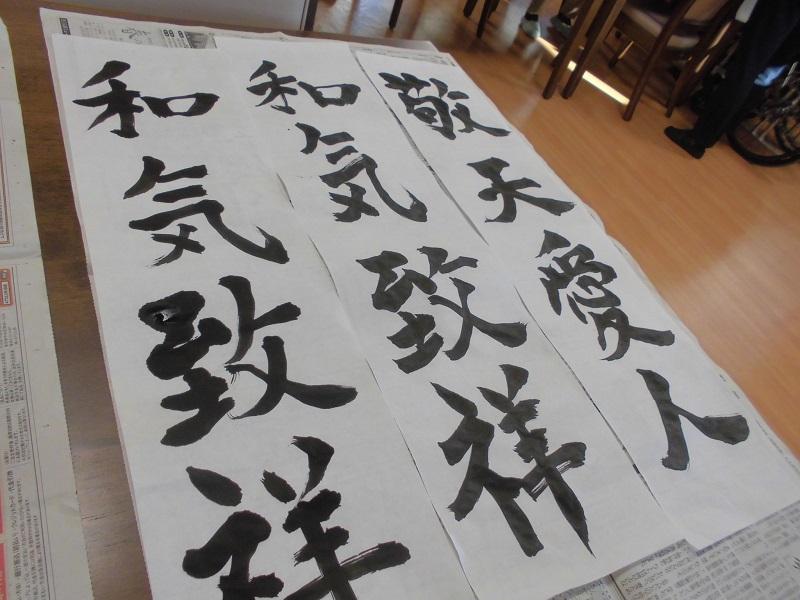 敬天愛人
和気致祥
和気致祥